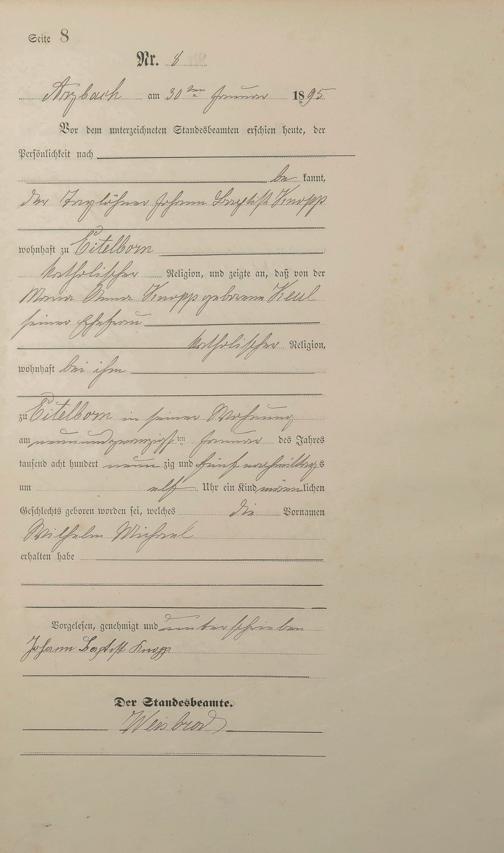 Seite 8
Nr. 8
Arzbach am 30ten Januar 1895
Vor dem unterzeichneten Standesbeamten erschien heute, der
Persönlichkeit nach
be kannt,
der Taglöhner Johann Baptist Knopp
wohnhaft zu Eitelborn
katholischer Religion, und zeigte an, daß von der
Maria Anna Knopp geborene Keul
seiner Ehefrau
katholischer Religion,
wohnhaft bei ihm
zu Eitelborn in seiner Wohnung
am neunundzwanzigsten Januar des Jahres
tausend acht hundert neun zig und fünf vormittags
um elf Uhr ein Kind männlichen
Geschlechts geboren worden sei, welches die Vornamen
Wilhelm Michael
erhalten habe
Vorgelesen, genehmigt und unterschrieben
Johann Baptist Knopp
Der Standesbeamte.
Weisbrod